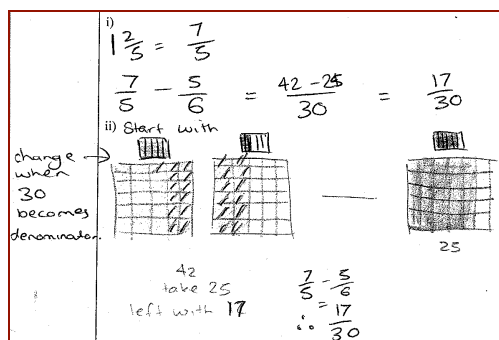 i)
1 2/5 = 7/5
7/5 - 5/6 = 42 - 25/30 = 17/30
ii) Start with
change →
when
30
becomes
denominator.
25
42
take 25
left with 17
7/5 - 5/6
= 17/30
∴